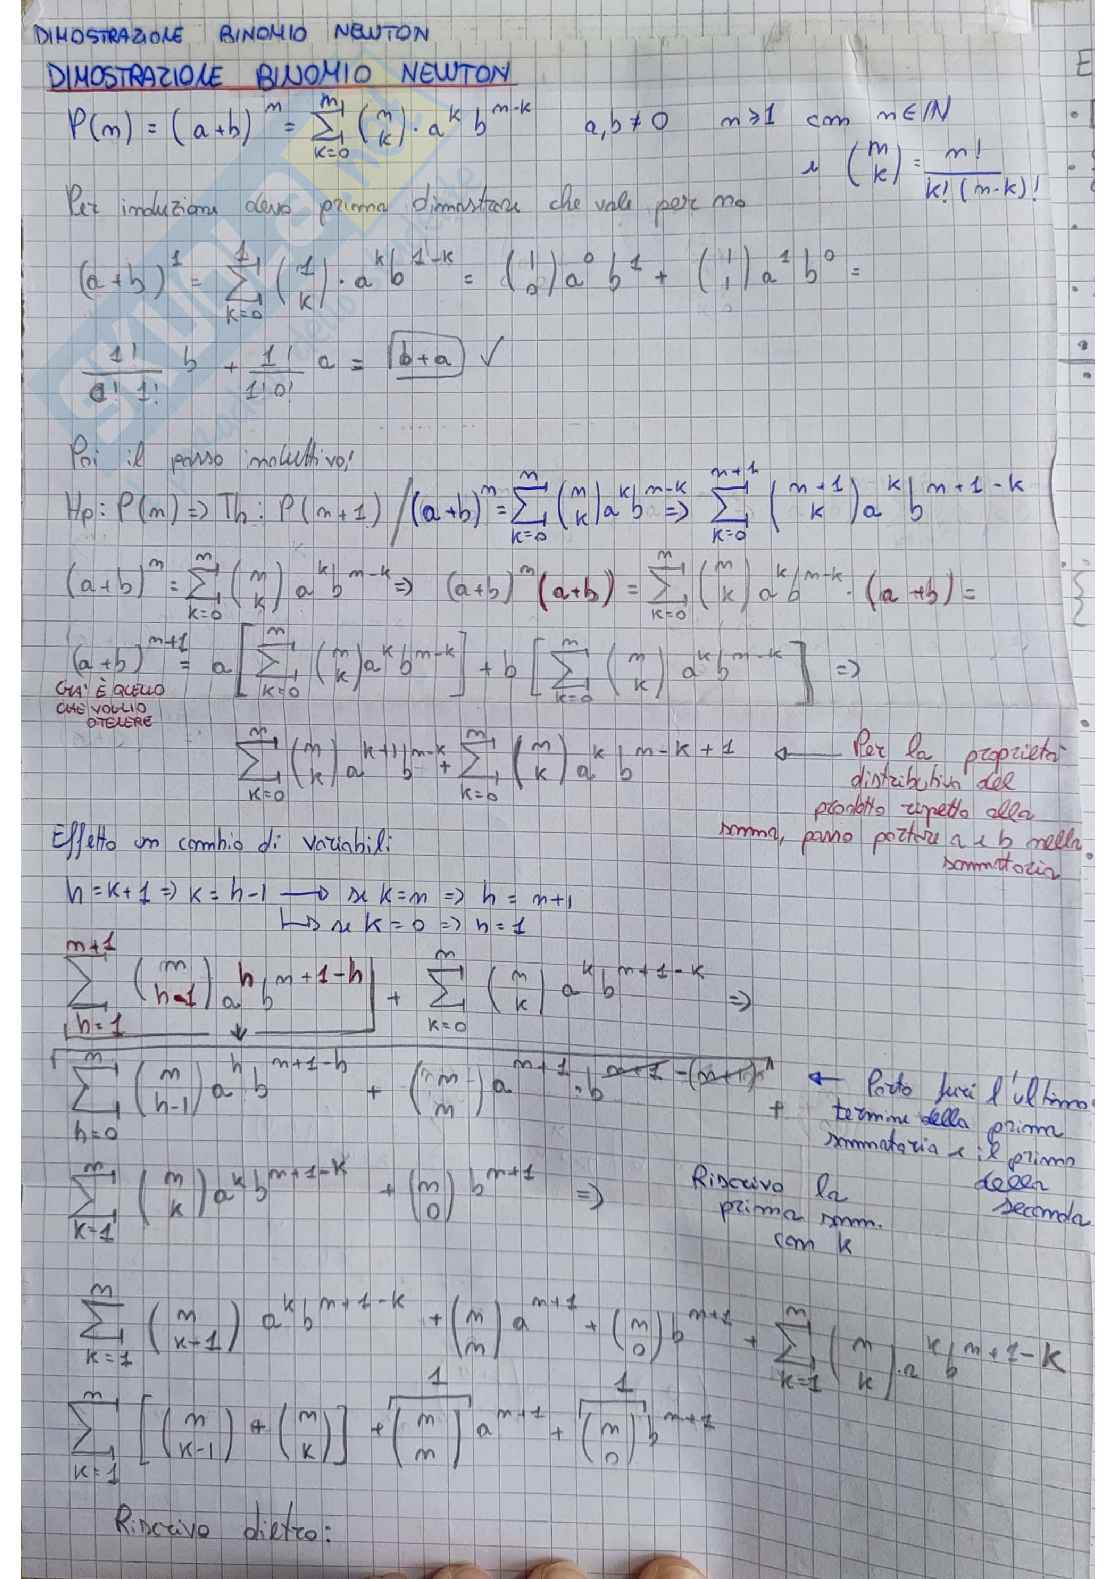 DIMOSTRAZIONE BINOMIO NEWTON
DIMOSTRAZIONE BINOMIO NEWTON
P(n) = (a+b)^n = ∑_{k=0}^{n} (n k) · a^k b^{n-k}   a,b ≠ 0   n ≥ 1 con n ∈ ℕ
e (n k) = n! / k! (n-k)!
Per induzione devo prima dimostrare che vale per n₀
(a+b)^1 = ∑_{k=0}^{1} (1 k) · a^k b^{1-k} = (1 0) a^0 b^1 + (1 1) a^1 b^0 =
1!/0! 1! b + 1!/1! 0! a = b+a ✓
Poi il passo induttivo:
Hp: P(n) => Th: P(n+1) / (a+b)^n = ∑_{k=0}^{n} (n k) a^k b^{n-k} => ∑_{k=0}^{n+1} (n+1 k) a^k b^{n+1-k}
(a+b)^n = ∑_{k=0}^{n} (n k) a^k b^{n-k} => (a+b)^n (a+b) = ∑_{k=0}^{n} (n k) a^k b^{n-k} · (a+b) =
(a+b)^{n+1} = a [∑_{k=0}^{n} (n k) a^k b^{n-k}] + b [∑_{k=0}^{n} (n k) a^k b^{n-k}] =>
È QUELLO
CHE VOGLIO
OTTENERE
∑_{k=0}^{n} (n k) a^{k+1} b^{n-k} + ∑_{k=0}^{n} (n k) a^k b^{n-k+1} ← Per la proprietà
distributiva del
prodotto rispetto alla
somma, posso portare a e b nella
sommatoria
Effetto un cambio di variabili:
h = k+1 => k = h-1 → se k = n => h = n+1
↳ se k = 0 => h = 1
∑_{h=1}^{n+1} (n h-1) a^h b^{n+1-h} + ∑_{k=0}^{n} (n k) a^k b^{n+1-k} =>
∑_{h=0}^{n} (n h-1) a^h b^{n+1-h} + (n n) a^{n+1} · b^{n+1-(n+1)} + ← Porto fuori l'ultimo
termine della prima
sommatoria e il primo
della
seconda
∑_{k=1}^{n} (n k) a^k b^{n+1-k} + (n 0) b^{n+1} =>
Riscrivo la
prima somm.
con k
∑_{k=1}^{n} (n k-1) a^k b^{n+1-k} + (n n) a^{n+1} + (n 0) b^{n+1} + ∑_{k=1}^{n} (n k) · a^k b^{n+1-k}
1 1
∑_{k=1}^{n} [(n k-1) + (n k)] + (n n) a^{n+1} + (n 0) b^{n+1}
Riscrivo dietro: